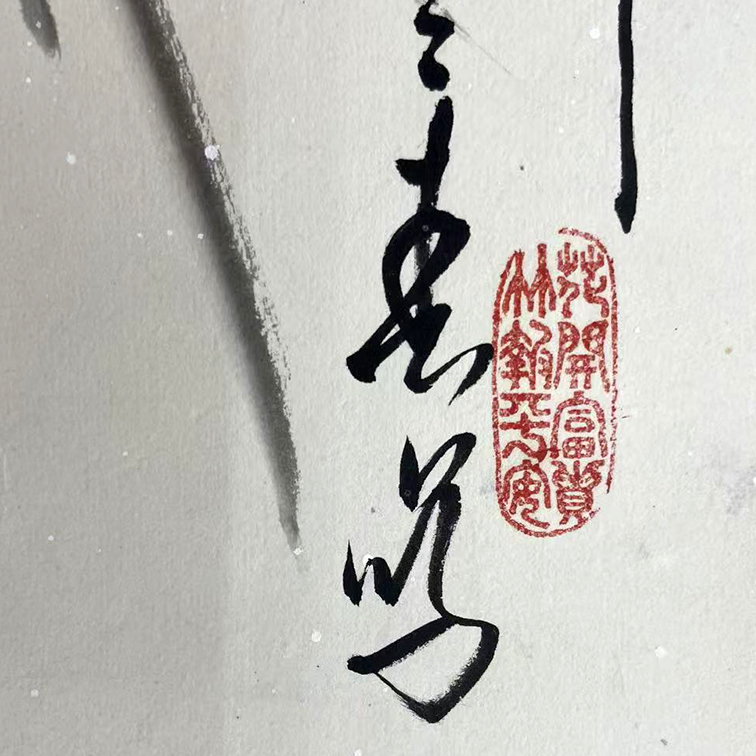 花開富貴
竹報平安
之春